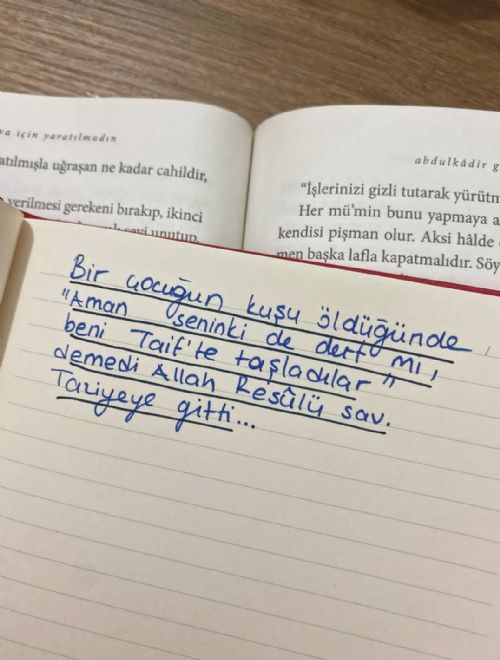 va için yaratılmadın
atılmışla uğraşan ne kadar cahildir,
verilmesi gerekeni bırakıp, ikinci
unutup,
abdulkâdir g
"İşlerinizi gizli tutarak yürütm
Her mü'min bunu yapmaya a
kendisi pişman olur. Aksi hâlde
men başka lafla kapatmalıdır. Söy
Bir çocuğun kuşu öldüğünde
"Aman seninki de dert mi,
beni Taif'te taşladılar"
demedi Allah Resûlü sav.
Taziyeye gitti...